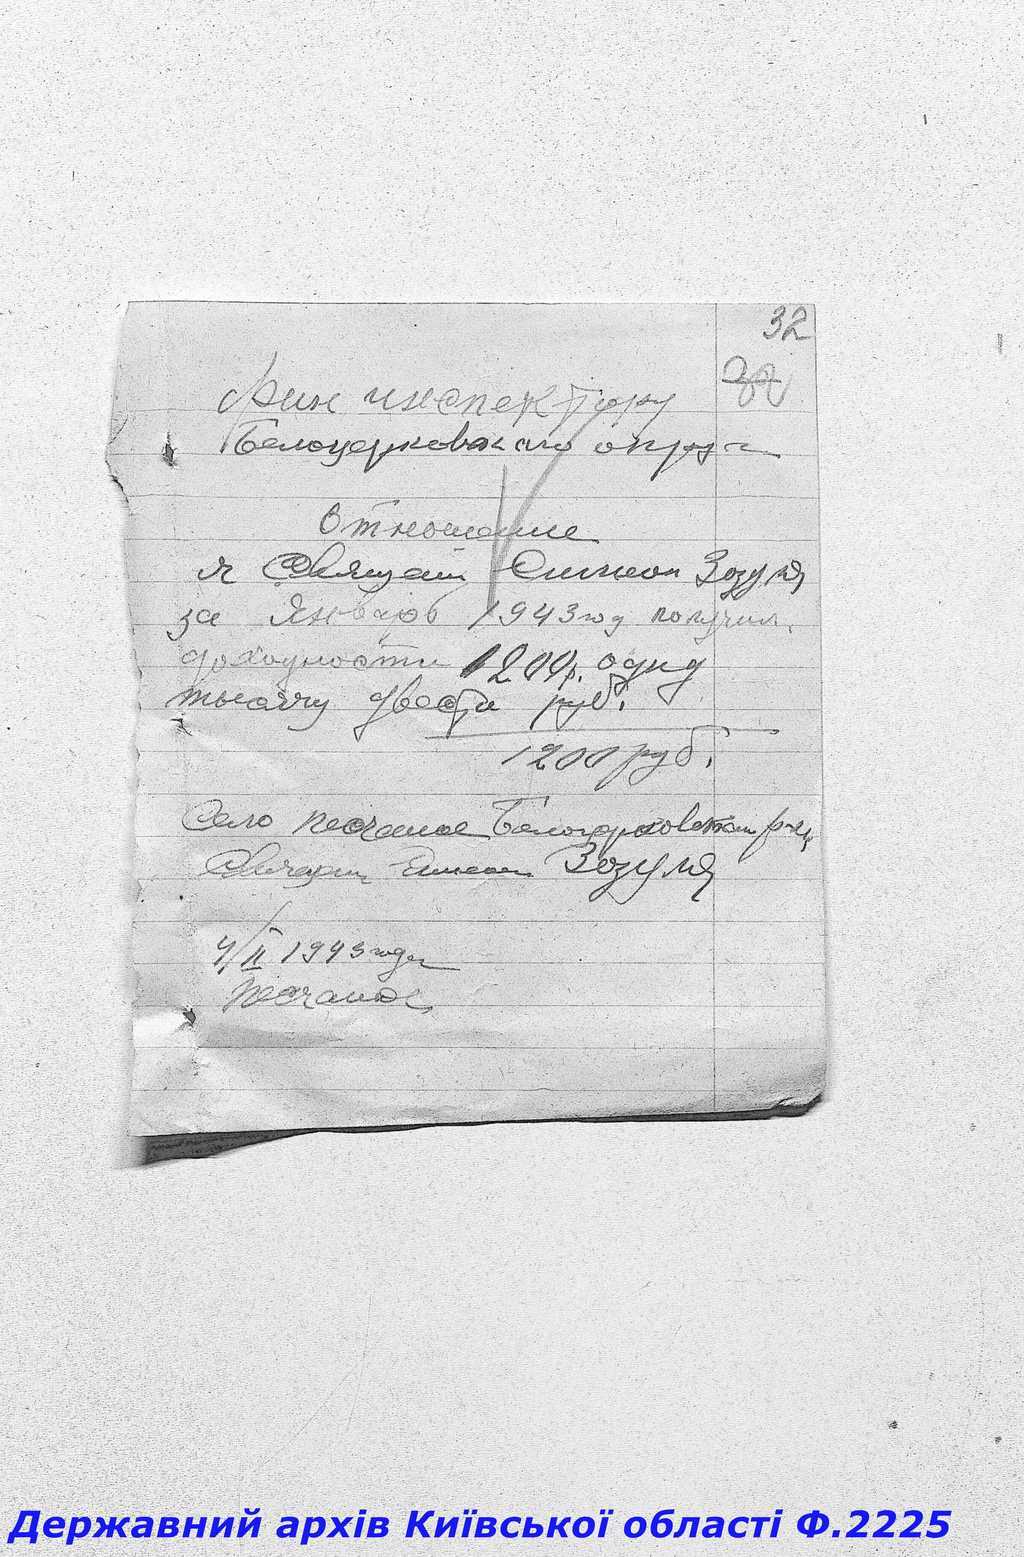 32
Фин инспектору
Белоцерковского округа
Отношение
я Священ Симеон Зозуля
за Январь 1943 год получил
доходности 1200р. одну
тысячу двести руб.
1200 руб.
Село Песчаное Белоцерковском р-на
Священ Симеон Зозуля
4/II 1943 года
Песчаное
Державний архів Київської області Ф.2225